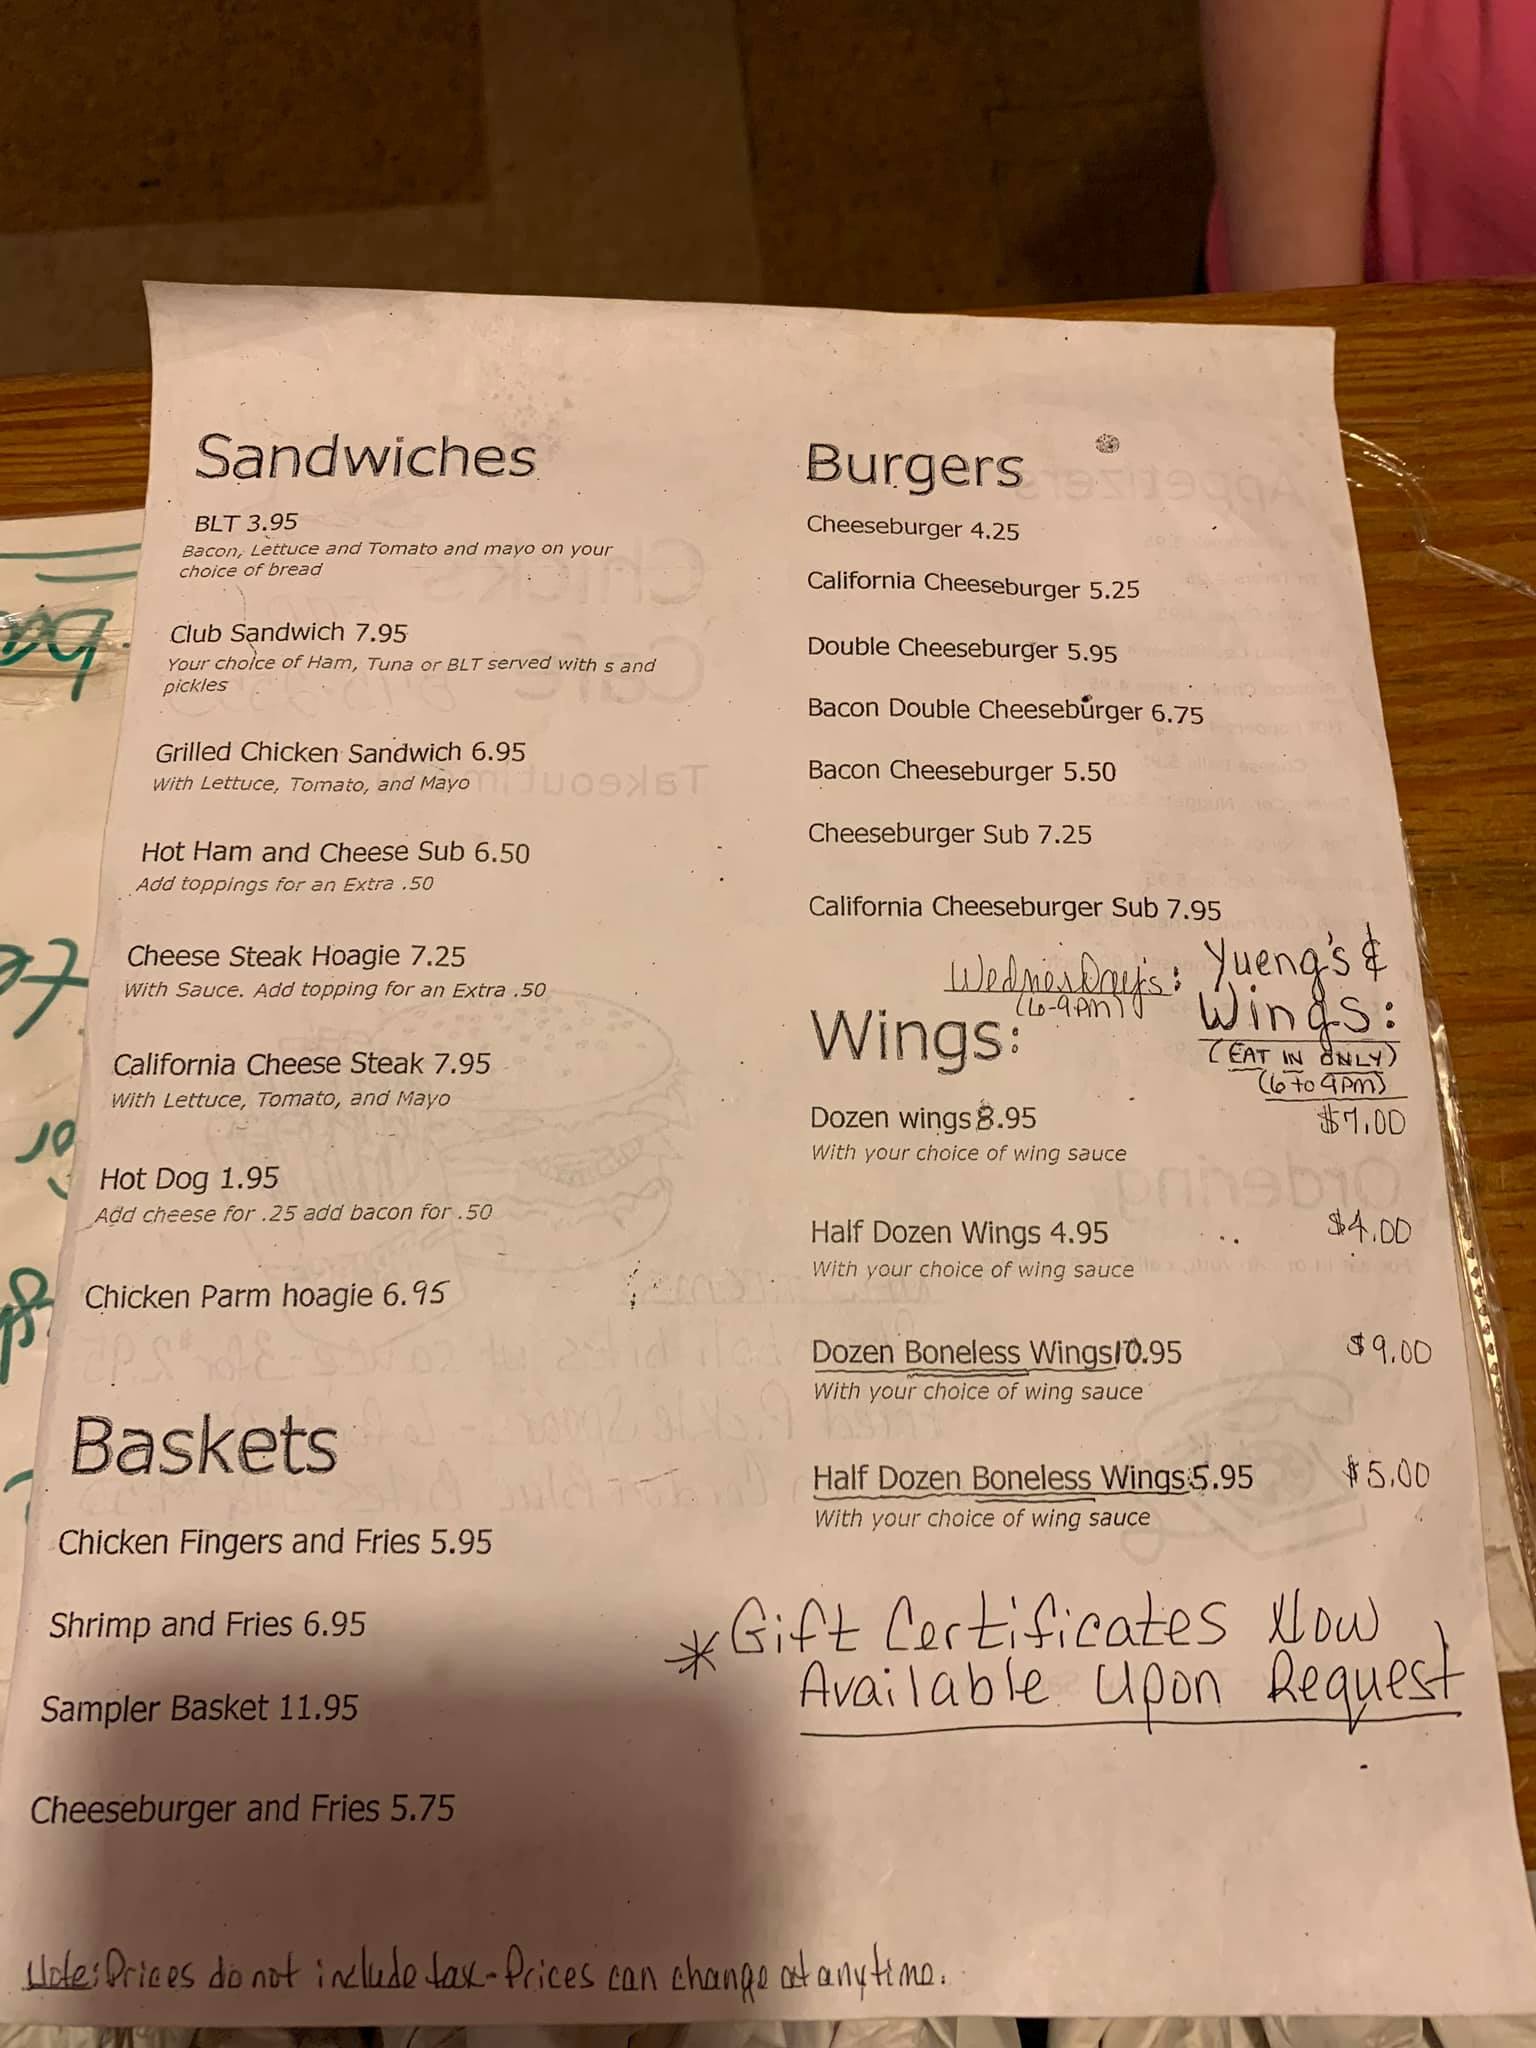 Sandwiches
BLT 3.95
Bacon, Lettuce and Tomato and mayo on your
choice of bread
Club Sandwich 7.95
Your choice of Ham, Tuna or BLT served with s and
pickles
Grilled Chicken Sandwich 6.95
With Lettuce, Tomato, and Mayo
Hot Ham and Cheese Sub 6.50
Add toppings for an Extra .50
Cheese Steak Hoagie 7.25
With Sauce. Add topping for an Extra .50
California Cheese Steak 7.95
With Lettuce, Tomato, and Mayo
Hot Dog 1.95
Add cheese for .25 add bacon for .50
Chicken Parm hoagie 6.95
Baskets
Chicken Fingers and Fries 5.95
Shrimp and Fries 6.95
Sampler Basket 11.95
Cheeseburger and Fries 5.75
Burgers
Cheeseburger 4.25
California Cheeseburger 5.25
Double Cheeseburger 5.95
Bacon Double Cheeseburger 6.75
Bacon Cheeseburger 5.50
Cheeseburger Sub 7.25
California Cheeseburger Sub 7.95
WednesDay's: Yueng's &
(6-9pm) Wings:
(EAT IN ONLY)
(6 to 9pm)
Wings:
Dozen wings 8.95 $7.00
With your choice of wing sauce
Half Dozen Wings 4.95 $4.00
With your choice of wing sauce
Dozen Boneless Wings 10.95 $9.00
With your choice of wing sauce
Half Dozen Boneless Wings 5.95 $5.00
With your choice of wing sauce
* Gift Certificates Now
Available Upon Request
Note: Prices do not include tax - Prices can change at anytime.